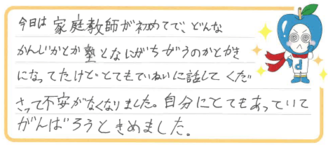 今日は家庭教師が初めてで、どんな
かんじかとか塾となにがちがうのかとかき
になってたけど、とてもていねいに話してくだ
さって不安がなくなりました。自分にとてもあっていて
がんばろうときめました。